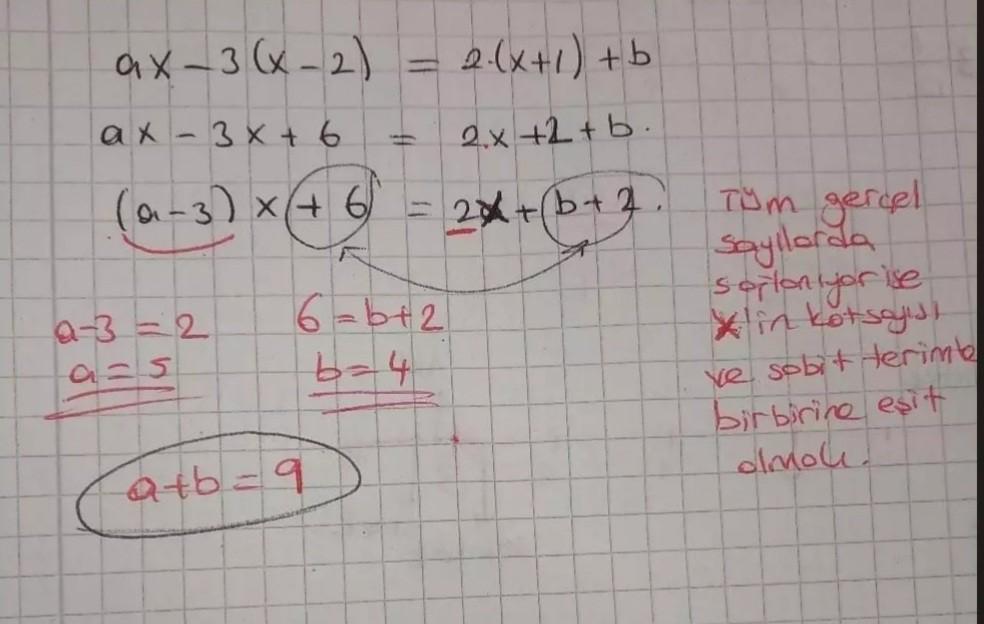 ax - 3(x - 2) = 2.(x+1) + b
ax - 3x + 6 = 2.x + 2 + b.
(a - 3) x + 6 = 2x + b + 2.
a - 3 = 2
a = 5
6 = b + 2
b = 4
a + b = 9
Tüm gerçel
sayılarda
sağlanıyor ise
x'in katsayısı
ve sabit terimle
birbirine eşit
olmalı.